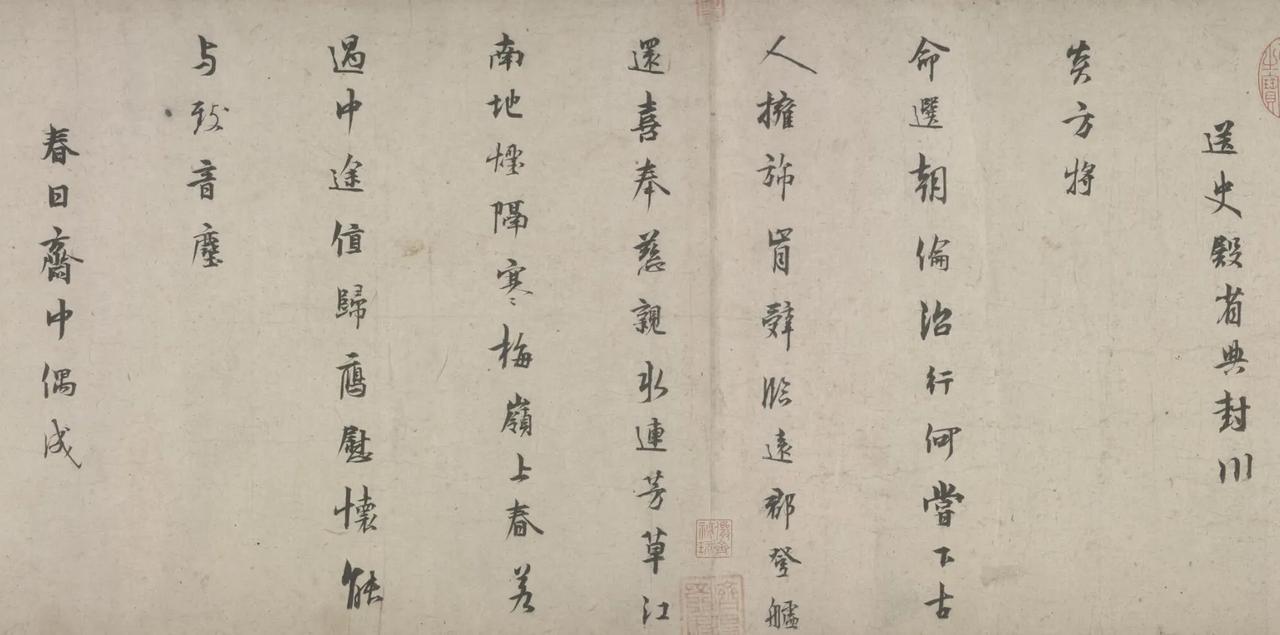 送史殿省典封川
炎方将
命選朝倫治行何當下古
人擁斾肯辭臨遠郡登艫
還喜奉慈親水連芳草江
南地煙隔寒梅嶺上春若
過中途值歸鴈慰懷能
与致音塵
春日齋中偶成